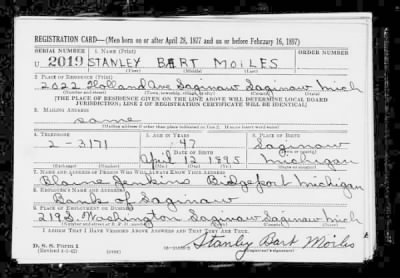 REGISTRATION CARD—(Men born on or after April 28, 1877 and on or before February 16, 1897)
SERIAL NUMBER 1. NAME (Print) ORDER NUMBER
U 2019 STANLEY BART MOILES
(First) (Middle) (Last)
2. PLACE OF RESIDENCE (Print)
2022 Holland Ave Saginaw Saginaw Mich
(Number and street) (Town, township, village, or city) (County) (State)
[THE PLACE OF RESIDENCE GIVEN ON THE LINE ABOVE WILL DETERMINE LOCAL BOARD
JURISDICTION; LINE 2 OF REGISTRATION CERTIFICATE WILL BE IDENTICAL]
3. MAILING ADDRESS
same
[Mailing address if other than place indicated on line 2. If same insert word same]
4. TELEPHONE 5. AGE IN YEARS 6. PLACE OF BIRTH
2-3171 47 Saginaw
DATE OF BIRTH (Town or county)
April 12 1895 Michigan
(Exchange) (Number) (Mo.) (Day) (Yr.) (State or country)
7. NAME AND ADDRESS OF PERSON WHO WILL ALWAYS KNOW YOUR ADDRESS
Blaine Jenkins Bridgeport Michigan
8. EMPLOYER'S NAME AND ADDRESS
Bank of Saginaw
9. PLACE OF EMPLOYMENT OR BUSINESS
Washington Saginaw Saginaw Mich
(Number and street or R. F. D. number) (Town) (County) (State)
I AFFIRM THAT I HAVE VERIFIED ABOVE ANSWERS AND THAT THEY ARE TRUE.
D. S. S. Form 1
Stanley Bart Moiles